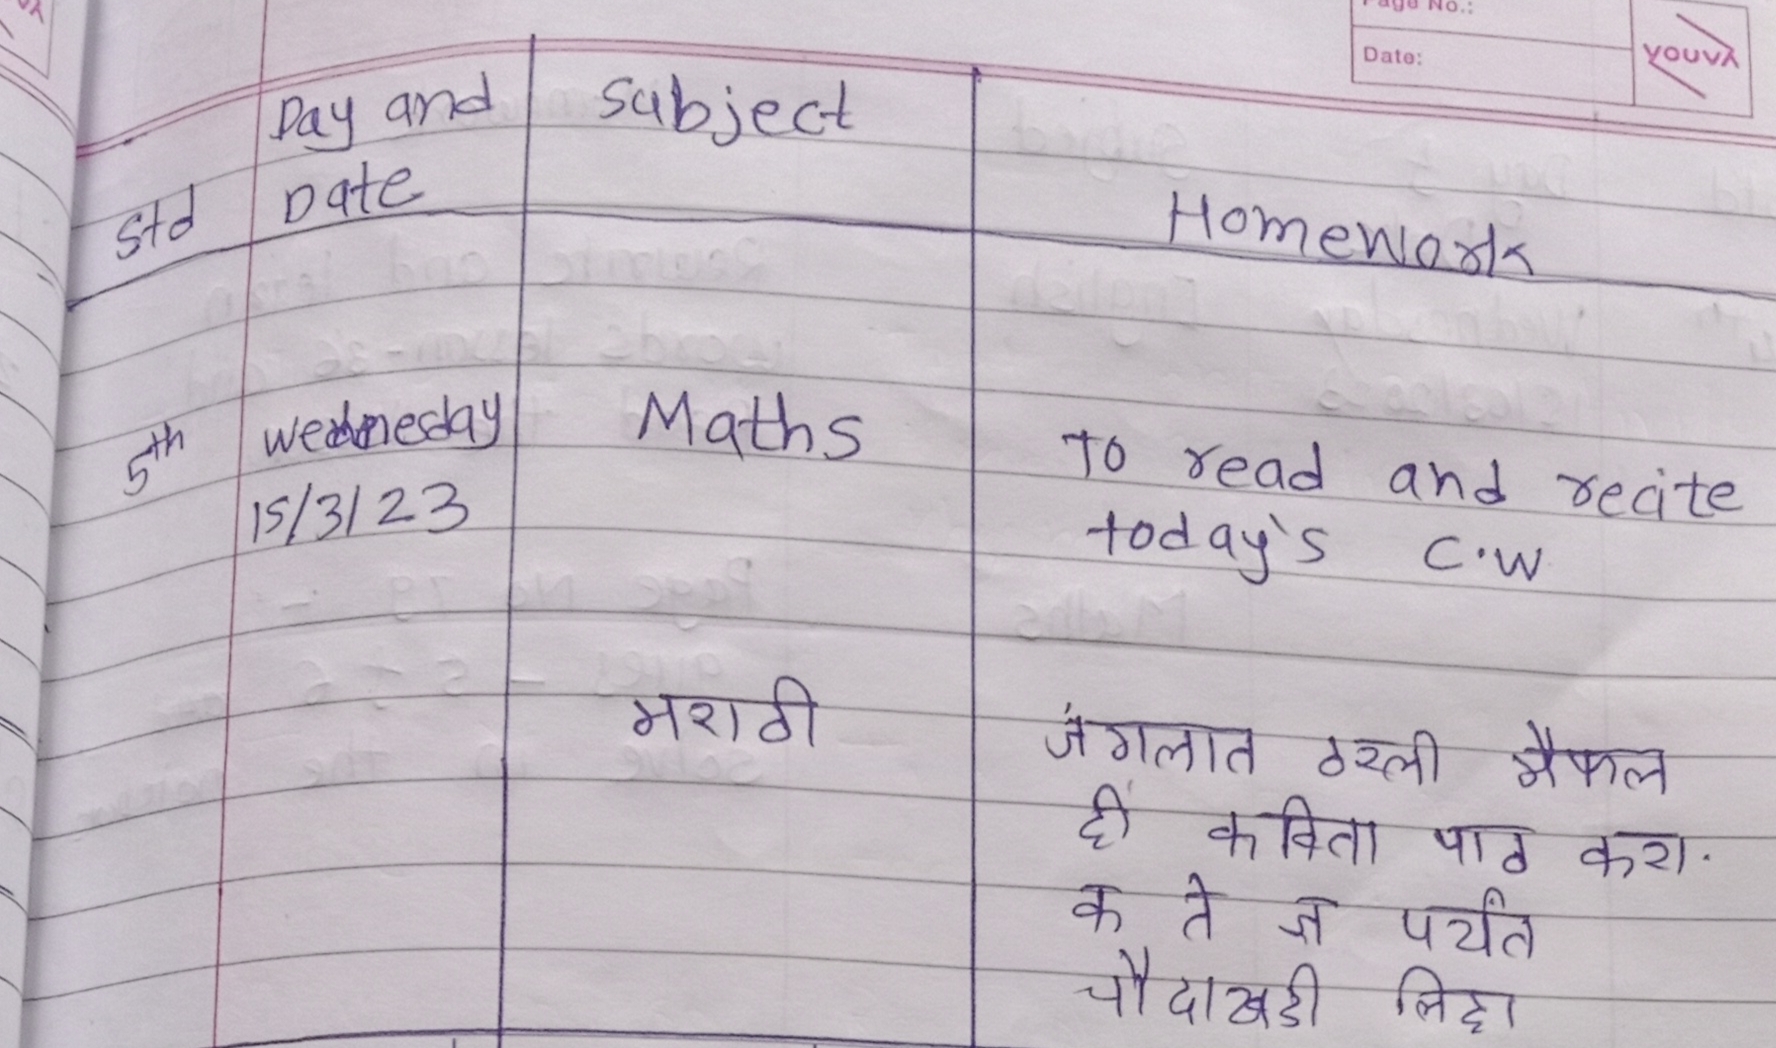 Page No.:
Date:
YOUVA
Day and Subject
Std Date Homework
5th Wednesday Maths To read and recite
15/3/23 today's C.W
मराठी जंगलात ठरली मैफल
ही कविता पाठ करा.
क ते ज्ञ पर्यंत
चौदाखडी लिहा